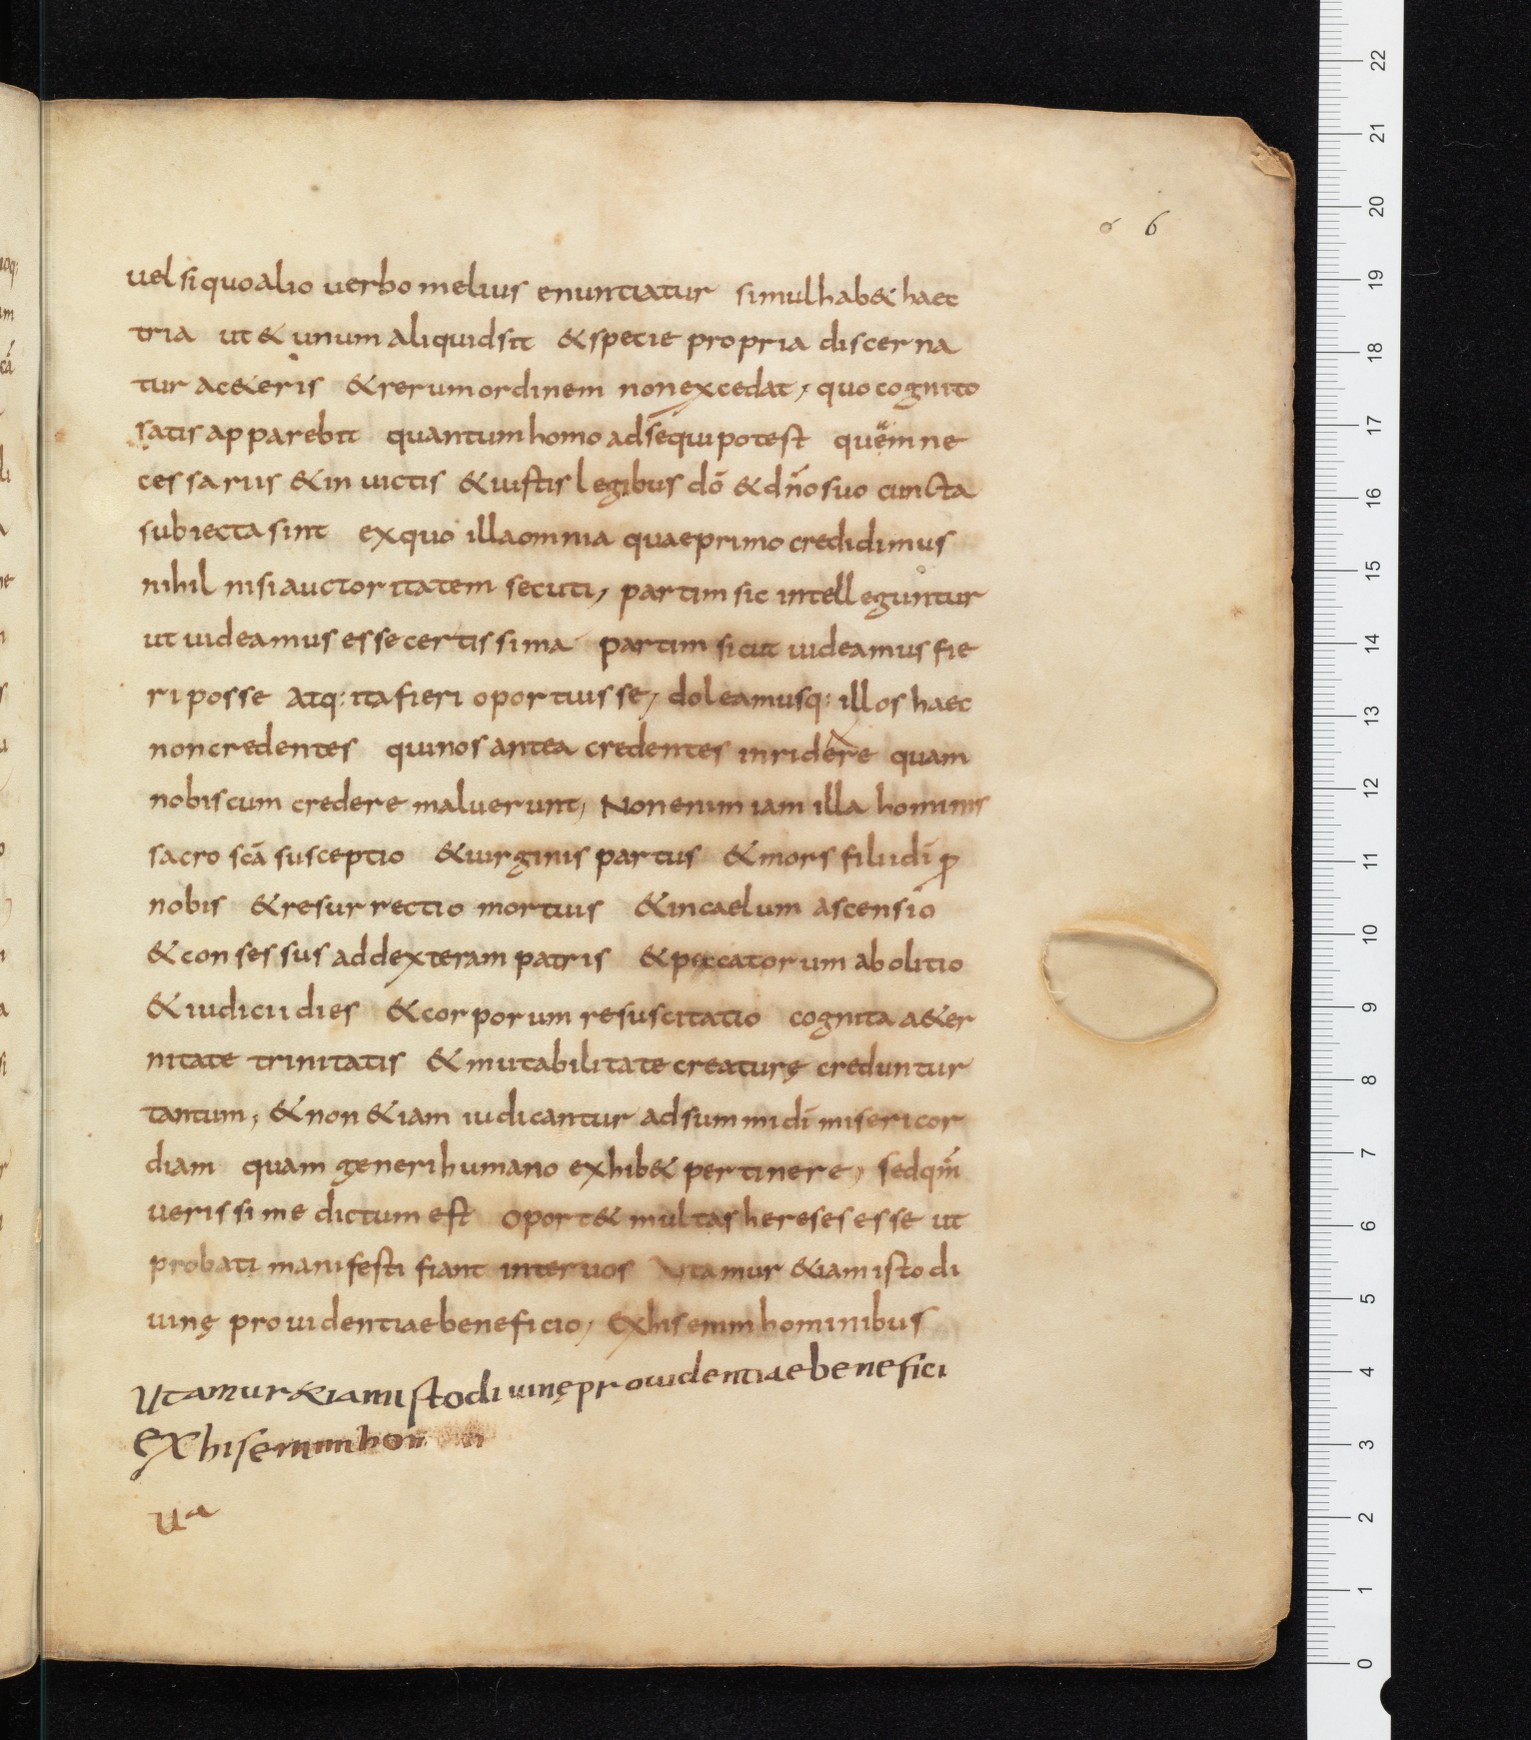 6 6
uel si quo alio uerbo melius enuntiatur simul hab& haec
tria ut & unum aliquid sit & specie propria discerna
tur ac&eris & rerum ordinem non excedat, quo cognito
satis apparebit quantum homo adsequi potest quem ne
cessariis & inuictis & iustis legibus dō & dño suo cuncta
subiecta sint ex quo illa omnia quae primo credidimus
nihil nisi auctoritatem secuti, partim sic intelleguntur
ut uideamus esse certissima partim sicut uideamus fie
ri posse Atq: ita fieri oportuisse, doleamusq: illos haec
non credentes qui nos antea credentes inridere quam
nobiscum credere maluerunt, Non enim iam illa hominis
sacro scā susceptio & uirginis partus & mors filii dī ꝓ
nobis & resurrectio mortuis & in caelum ascensio
& consessus ad dexteram patris & peccatorum abolitio
& iudicii dies & corporum resuscitatio cognita a&er
nitate trinitatis & mutabilitate creaturę creduntur
tantum, & non &iam iudicantur ad summi dī misericor
diam quam generi humano exhib& pertinere, sed qm̄
uerissime dictum est oport& multas hereses esse ut
probati manifesti fiant inter uos Vtamur &iam isto di
uinę prouidentiae beneficio, Ex his enim hominibus
Utamur &iam isto diuinę prouidentiae benefici
Ex his enim hom
ua